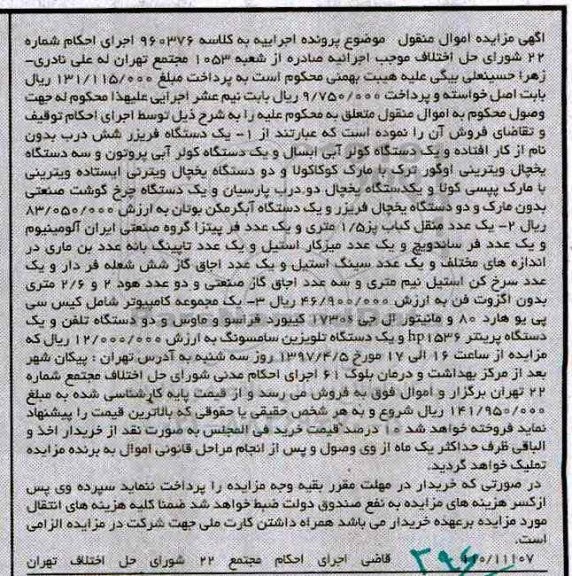 آگهی مزایده اموال منقول موضوع پرونده اجراییه به کلاسه ۹۶۰۳۷۶ اجرای احکام شماره
۲۲ شورای حل اختلاف موجب اجرائیه صادره از شعبه ۱۰۵۳ مجتمع تهران له علی نادری-
زهرا حسینعلی بیگی علیه هیبت بهمنی محکوم است به پرداخت مبلغ ۱۳۱/۱۱۵/۰۰۰ ریال
بابت اصل خواسته و پرداخت ۹/۷۵۰/۰۰۰ ریال بابت نیم عشر اجرایی علیهذا محکوم له جهت
وصول محکوم به اموال منقول متعلق به محکوم علیه را به شرح ذیل توسط اجرای احکام توقیف
و تقاضای فروش آن را نموده است که عبارتند از ۱- یک دستگاه فریزر شش درب بدون
نام از کار افتاده و یک دستگاه کولر آبی آبسال و یک دستگاه کولر آبی پروتون و سه دستگاه
یخچال ویترینی اوگور ترک با مارک کوکاکولا و دو دستگاه یخچال ویترنی ایستاده ویترینی
با مارک پپسی کولا و یکدستگاه یخچال دو.درب پارسیان و یک دستگاه چرخ گوشت صنعتی
بدون مارک و دو دستگاه یخچال فریزر و یک دستگاه آبگرمکن بوتان به ارزش ۸۳/۰۵۰/۰۰۰
ریال ۲- یک عدد منقل کباب پز۱/۵ متری و یک عدد فر پیتزا گروه صنعتی ایران آلومینیوم
و یک عدد فر ساندویچ و یک عدد میزکار استیل و یک عدد تاپینگ بانه عدد بن ماری در
اندازه های مختلف و یک عدد سینگ استیل و یک عدد اجاق گاز شش شعله فر دار و یک
عدد سرخ کن استیل نیم متری و سه عدد اجاق گاز صنعتی و دو عدد هود ۲ و ۲/۶ متری
بدون اگزوت فن به ارزش ۴۶/۹۰۰/۰۰۰ ریال ۳- یک مجموعه کامپیوتر شامل کیس سی
پی یو هارد ۸۰ و مانیتور ال جی ۱۷۳۰۶ کیبورد فراسو و ماوس و دو دستگاه تلفن و یک
دستگاه پرینتر hp۱۵۳۶ و یک دستگاه تلویزین سامسونگ به ارزش ۱۲/۰۰۰/۰۰۰ ریال که
مزایده از ساعت ۱۶ الی ۱۷ مورخ ۱۳۹۷/۴/۵ روز سه شنبه به آدرس تهران : پیکان شهر
بعد از مرکز بهداشت و درمان بلوک ۶۱ اجرای احکام مدنی شورای حل اختلاف مجتمع شماره
۲۲ تهران برگزار و اموال فوق به فروش می رسد و از قیمت پایه کارشناسی شده به مبلغ
۱۴۱/۹۵۰/۰۰۰ ریال شروع و به هر شخص حقیقی یا حقوقی که بالاترین قیمت را پیشنهاد
نماید فروخته خواهد شد ۱۰ درصد قیمت خرید فی المجلس به صورت نقد از خریدار اخذ و
الباقی ظرف حداکثر یک ماه از وی وصول و پس از انجام مراحل قانونی اموال به برنده مزایده
تملیک خواهد گردید.
در صورتی که خریدار در مهلت مقرر بقیه وجه مزایده را پرداخت ننماید سپرده وی پس
ازکسر هزینه های مزایده به نفع صندوق دولت ضبط خواهد شد ضمنا کلیه هزینه های انتقال
مورد مزایده برعهده خریدار می باشد همراه داشتن کارت ملی جهت شرکت در مزایده الزامی
است.
۱۱۱۰۷/ قاضی اجرای احکام مجتمع ۲۲ شورای حل اختلاف تهران